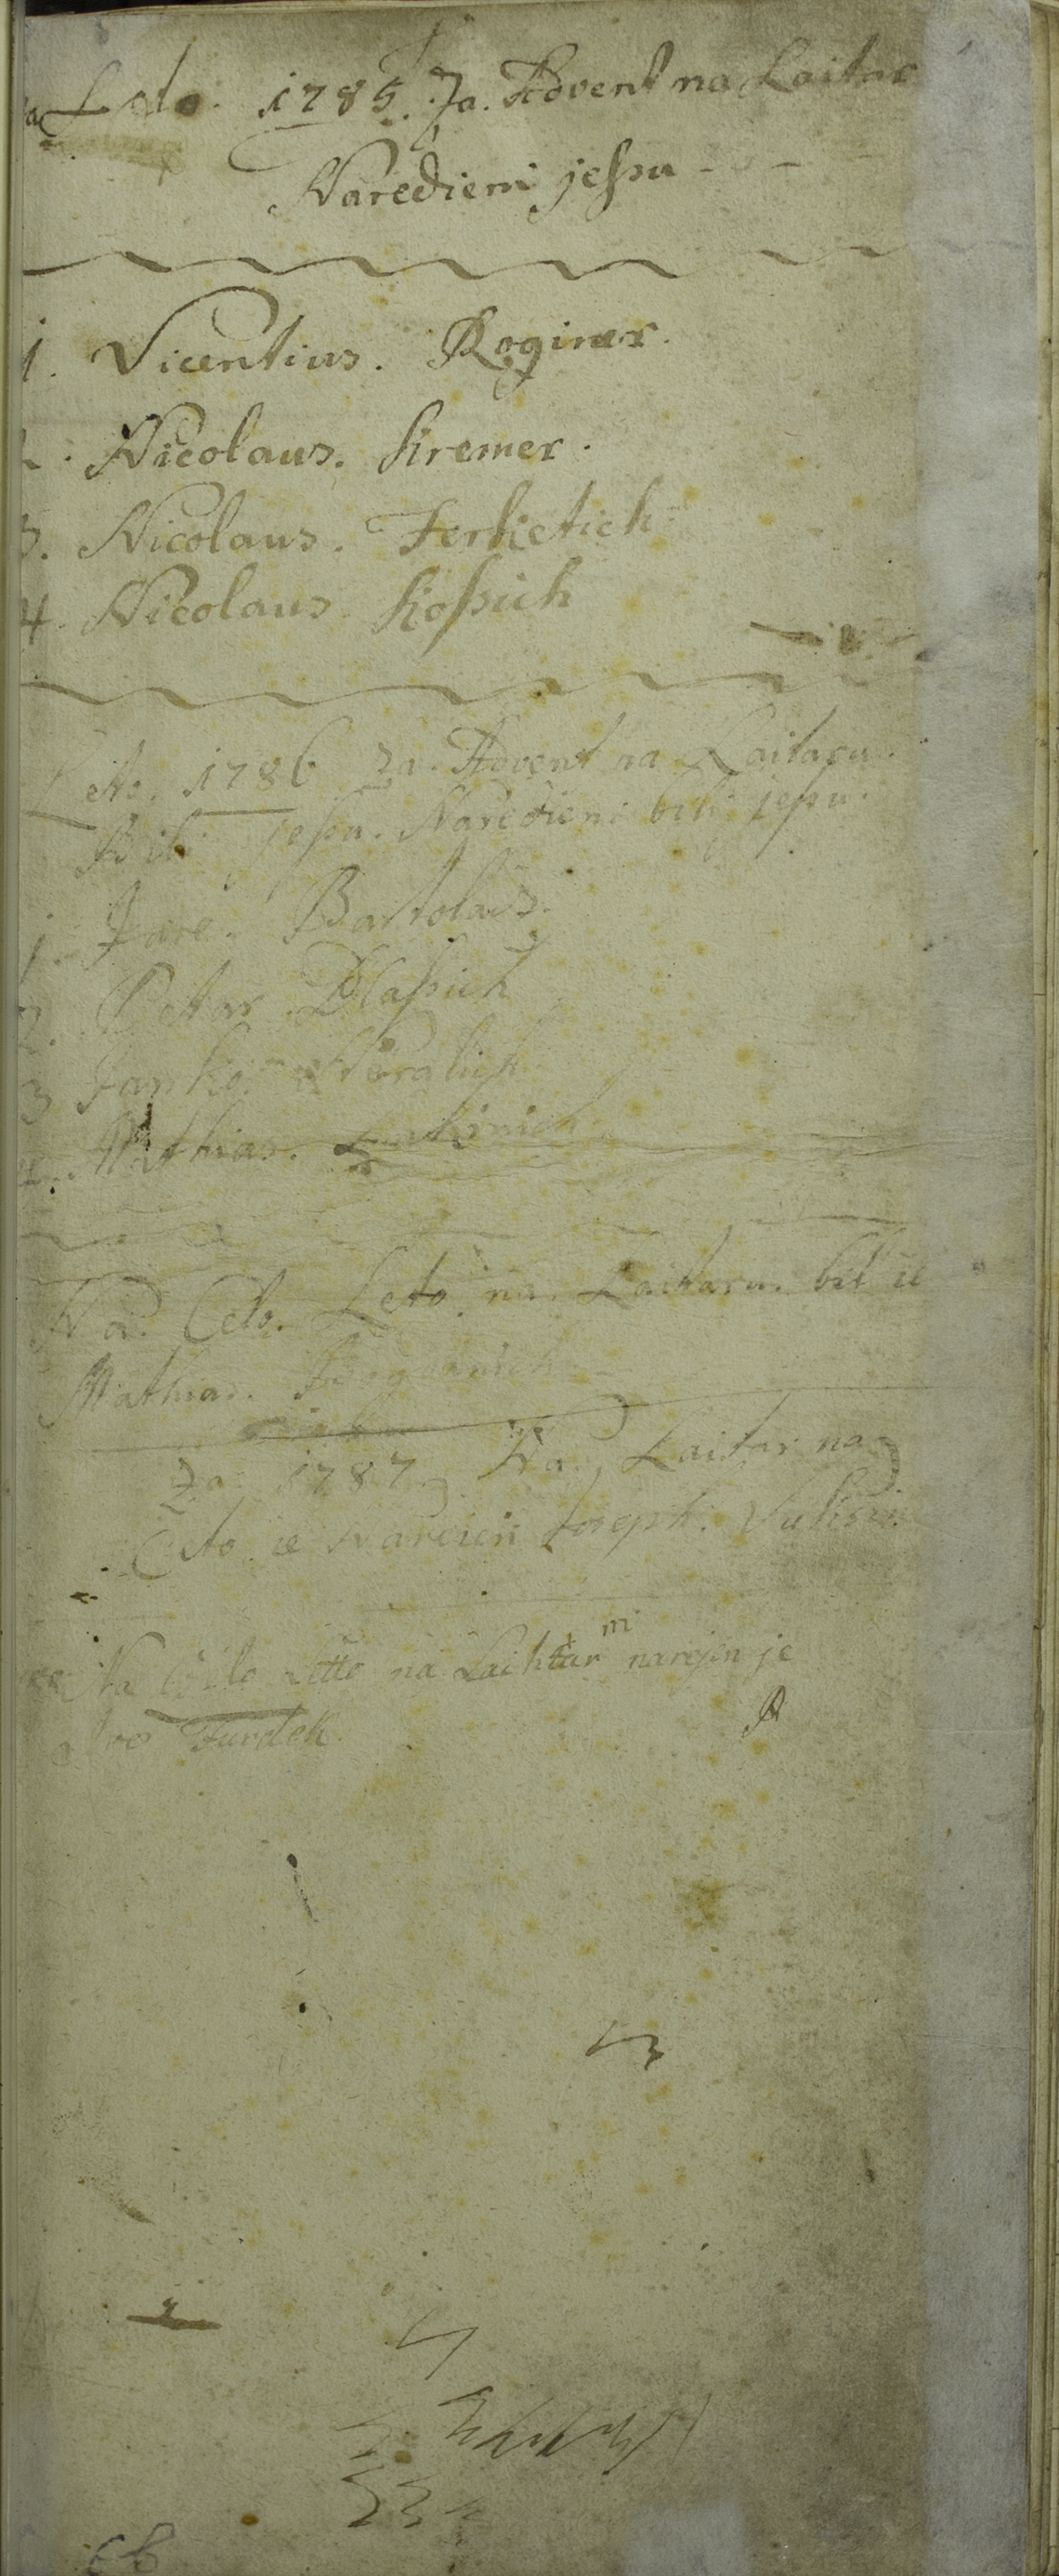 Leto. 1785. Za. Advent na Laitar
Naredieni jeſzu
1. Vicentius. Roginer.
2. Nicolaus. Kremer.
3. Nicolaus. Ferketich
4. Nicolaus Koſzich
Leto. 1786 Za. Advent na Laitaru.
Bili jeſzu. Naredieni bili jeſzu.
1. Jure. Bartolaus.
2. Petar Blaſzich
3 Janko.
4. Mathias.
Na. Celo. Leto. na. Laitaru. bil ie
Mathias.
Za 1787. Na. Laitar na
Leto ie Nareien Joseph.
Na Czelo Letto na Laihtar m narejen je
Ivo Furdek.